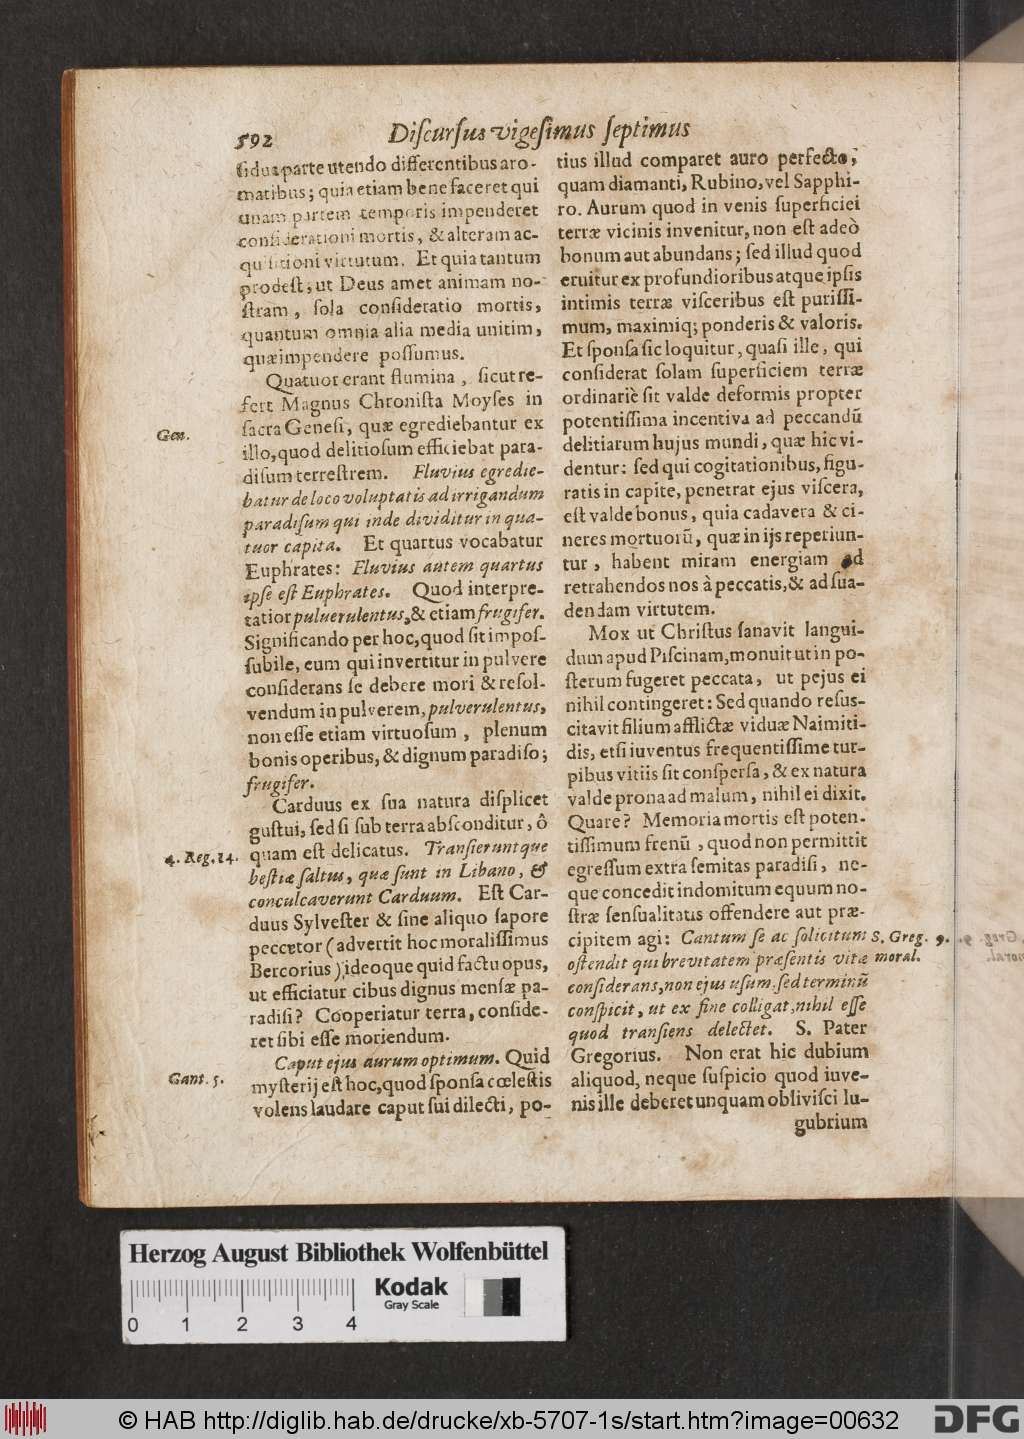 592
Diſcurſus vigeſimus ſeptimus
ſidua parte utendo differentibus aro-
matibus; quia etiam bene faceret qui
unam partem temporis impenderet
conſiderationi mortis, & alteram ac-
quiſitioni virtutum. Et quia tantum
prodeſt, ut Deus amet animam no-
ſtram, ſola conſideratio mortis,
quantum omnia alia media unitim,
quæ impendere poſſumus.
Quatuor erant flumina, ſicut re-
fert Magnus Chroniſta Moyſes in
ſacra Geneſi, quæ egrediebantur ex
illo, quod delitioſum efficiebat para-
diſum terreſtrem. Fluvius egredie-
batur de loco voluptatis ad irrigandum
paradiſum qui inde dividitur in qua-
tuor capita. Et quartus vocabatur
Euphrates: Fluvius autem quartus
ipſe eſt Euphrates. Quod interpre-
tatior pulverulentus, & etiam frugifer.
Significando per hoc, quod ſit impoſ-
ſubile, eum qui invertitur in pulvere
conſiderans ſe debere mori & reſol-
vendum in pulverem, pulverulentus,
non eſſe etiam virtuoſum, plenum
bonis operibus, & dignum paradiſo;
frugifer.
Carduus ex ſua natura diſplicet
guſtui, ſed ſi ſub terra abſconditur, ô
quam eſt delicatus. Tranſieruntque
beſtiæ ſaltus, quæ ſunt in Libano, &
conculcaverunt Carduum. Eſt Car-
duus Sylveſter & ſine aliquo ſapore
peccetor (advertit hoc moraliſſimus
Bercorius) ideoque quid factu opus,
ut efficiatur cibus dignus menſæ pa-
radiſi? Cooperiatur terra, conſide-
ret ſibi eſſe moriendum.
Caput ejus aurum optimum. Quid
myſterij eſt hoc, quod ſponſa cœleſtis
volens laudare caput ſui dilecti, po-
Gen.
4. Reg. 14.
Cant. 5.
tius illud comparet auro perfecto,
quam diamanti, Rubino, vel Sapphi-
ro. Aurum quod in venis ſuperficiei
terræ vicinis invenitur, non eſt adeò
bonum aut abundans; ſed illud quod
eruitur ex profundioribus atque ipſis
intimis terræ viſceribus eſt puriſſi-
mum, maximiq; ponderis & valoris.
Et ſponſa ſic loquitur, quaſi ille, qui
conſiderat ſolam ſuperficiem terræ
ordinariè ſit valde deformis propter
potentiſſima incentiva ad peccandū
delitiarum hujus mundi, quæ hic vi-
dentur: ſed qui cogitationibus, figu-
ratis in capite, penetrat ejus viſcera,
eſt valde bonus, quia cadavera & ci-
neres mortuorū, quæ in ijs reperiun-
tur, habent miram energiam ad
retrahendos nos à peccatis, & ad ſua-
dendam virtutem.
Mox ut Chriſtus ſanavit langui-
dum apud Piſcinam, monuit ut in po-
ſterum fugeret peccata, ut pejus ei
nihil contingeret: Sed quando reſus-
citavit filium afflictæ viduæ Naimiti-
dis, etſi iuventus frequentiſſime tur-
pibus vitiis ſit conſperſa, & ex natura
valde prona ad malum, nihil ei dixit.
Quare? Memoria mortis eſt poten-
tiſſimum frenū, quod non permittit
egreſſum extra ſemitas paradiſi, ne-
que concedit indomitum equum no-
ſtræ ſenſualitatis offendere aut præ-
cipitem agi: Cantum ſe ac ſolicitum
oſtendit qui brevitatem præſentis vitæ
conſiderans, non ejus uſum, ſed terminū
conſpicit, ut ex fine colligat, nihil eſſe
quod tranſiens delectet. S. Pater
Gregorius. Non erat hic dubium
aliquod, neque ſuſpicio quod iuve-
nis ille deberet unquam obliviſci lu-
gubrium
S. Greg. 9.
moral.
Herzog August Bibliothek Wolfenbüttel
Kodak
Gray Scale
0 1 2 3 4
© HAB http://diglib.hab.de/drucke/xb-5707-1s/start.htm?image=00632
DFG